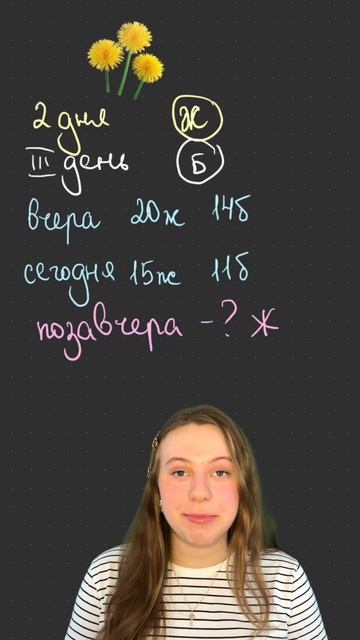 2 дня Ж
III день Б
вчера 20ж 14б
сегодня 15ж 11б
позавчера - ? Ж